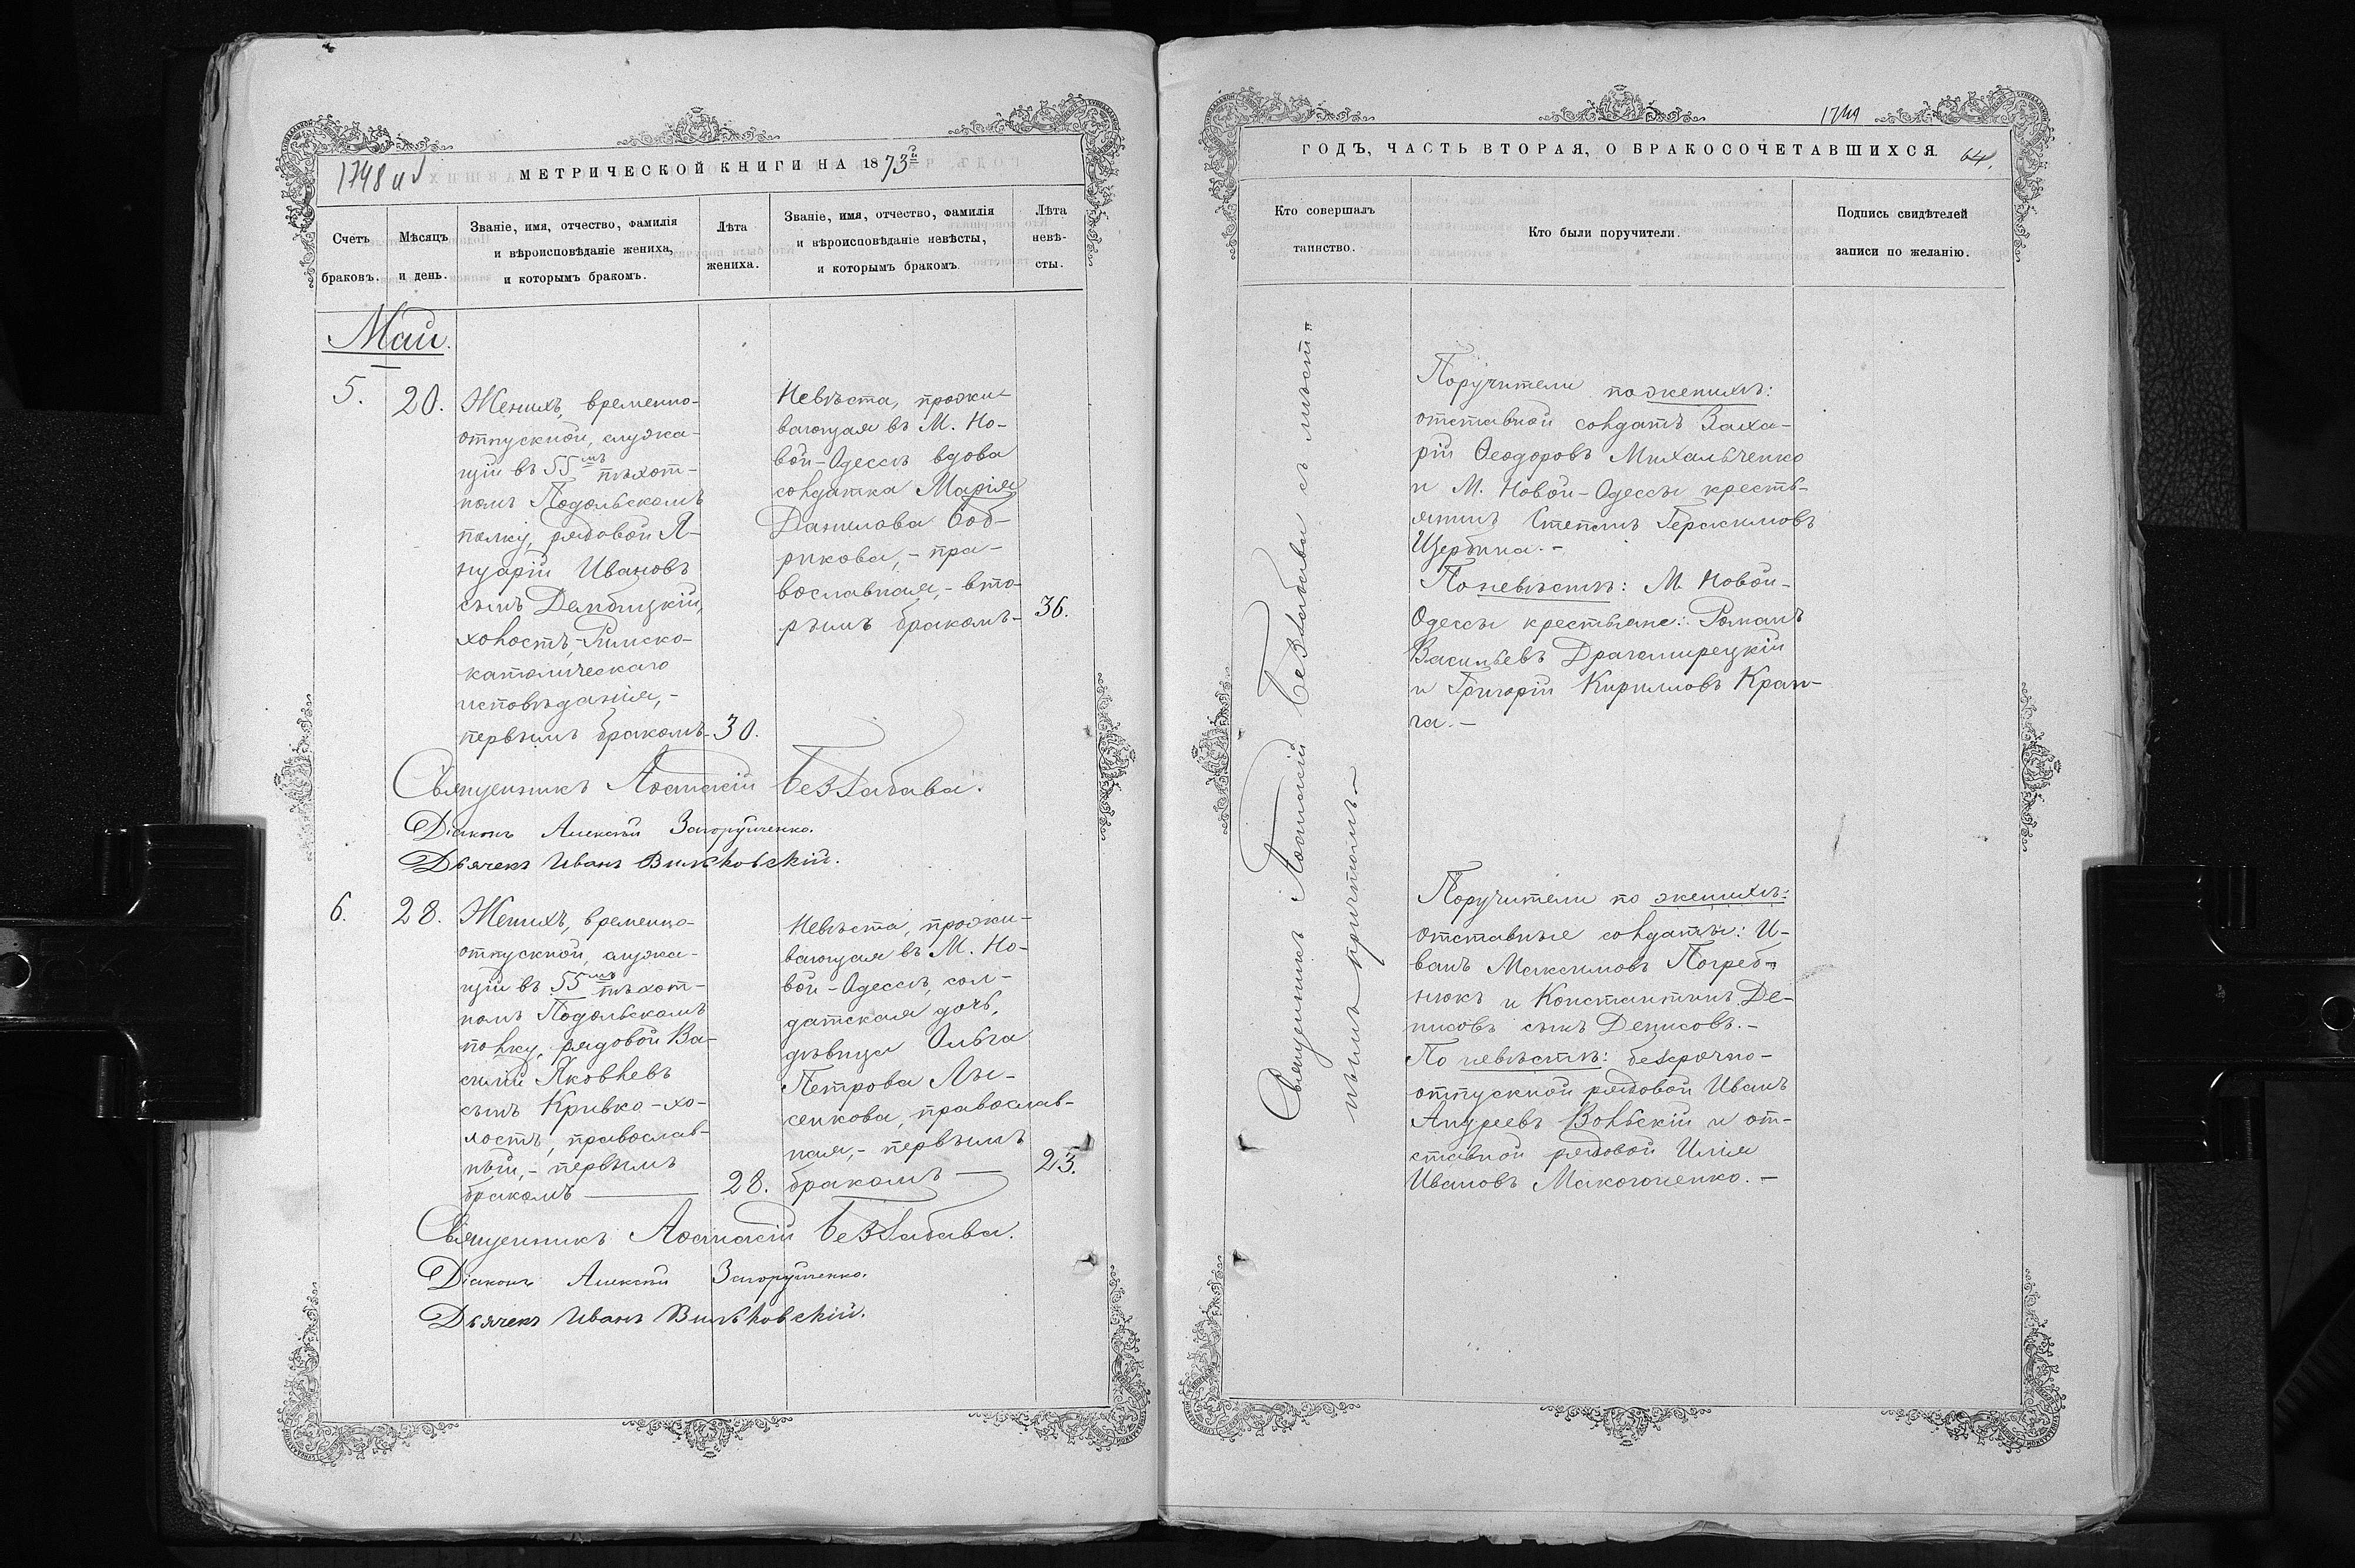 1748 и
МЕТРИЧЕСКОЙ КНИГИ НА 1873й
Счетъ браковъ.
Мѣсяцъ и день.
Званіе, имя, отчество, фамилія
и вѣроисповѣданіе жениха,
и которымъ бракомъ.
Лѣта
жениха.
Званіе, имя, отчество, фамилія
и вѣроисповѣданіе невѣсты,
и которымъ бракомъ
Лѣта
невѣ-
сты.
Май.
5.
20.
Женихъ, временно-
отпускной, служа-
щій въ 55мъ пѣхот-
номъ Подольскомъ
полку, рядовой Я-
нуарій Ивановъ
сынъ Дембицкій,
холостъ, Римско-
католическаго
исповѣданія,-
первымъ бракомъ-
30.
Невѣста, прожи-
вающая въ М. Но-
вой-Одессѣ вдова
солдатка Марія
Данилова Бод-
рикова,- пра-
вославная,- вто-
рымъ бракомъ-
36.
Священникъ Аѳанасій Беззабава.
Діаконъ Алексѣй Загоруйченко.
Дьячекъ Иванъ Вильковскій.
6.
28.
Женихъ, временно-
отпускной, служа-
щій въ 55мъ пѣхот-
номъ Подольскомъ
полку, рядовой Ва-
силій Яковлевъ
сынъ Кривко-хо-
лостъ, православ-
ный,- первымъ
бракомъ
28.
Невѣста, прожи-
вающая въ М. Но-
вой-Одессѣ, сол-
датская дочь,
дѣвица Ольга
Петрова Лы-
сенкова, православ-
ная,- первымъ
бракомъ —
23.
Священникъ Аѳанасій Беззабава.
Діаконъ Алексѣй Загоруйченко.
Дьячекъ Иванъ Вильковскій.
1749
ГОДЪ, ЧАСТЬ ВТОРАЯ, О БРАКОСОЧЕТАВШИХСЯ.
64.
Кто совершалъ
таинство.
Кто были поручители.
Подпись свидѣтелей
записи по желанію.
Священникъ Аѳанасій Беззабава съ мѣст-
нымъ причтомъ.—
Поручители по женихѣ:
отставной солдатъ Заха-
рій Ѳеодоровъ Михальченко
и М. Новой-Одессы кресть-
янинъ Степанъ Герасимовъ
Щербина.-
По невѣстѣ: М. Новой-
Одессы крестьяне: Романъ
Васильевъ Драгомирецкій
и Григорій Кирилловъ
Поручители по женихѣ:
отставные солдаты: И-
ванъ Максимовъ Погреб-
нюкъ и Константинъ Де-
нисовъ сынъ Денисовъ.-
По невѣстѣ: безсрочно-
отпускной рядовой Иванъ
Андреевъ Вольскій и от-
ставной рядовой Илія
Ивановъ Макогоненко.-